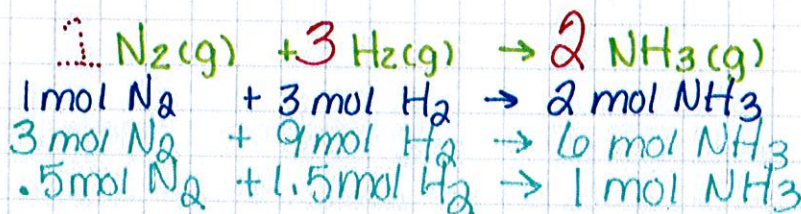 1 N2(g) + 3 H2(g) → 2 NH3(g)
1 mol N2 + 3 mol H2 → 2 mol NH3
3 mol N2 + 9 mol H2 → 6 mol NH3
.5mol N2 + 1.5mol H2 → 1 mol NH3